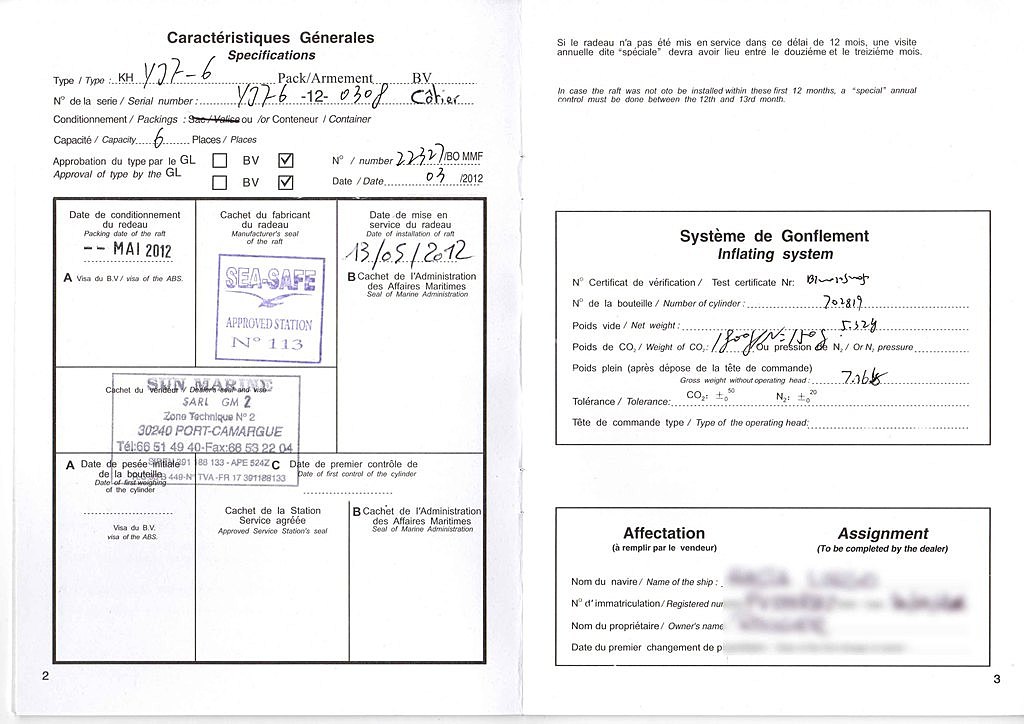 Caractéristiques Génerales
Specifications
Type / Type : KH YJ7-6 Pack/Armement BV
N° de la serie / Serial number : YJ76 -12- 0308 Côtier
Conditionnement / Packings : Sac / Valise ou /or Conteneur / Container
Capacité / Capacity 6 Places / Places
Approbation du type par le GL BV N° / number 22327/BO MMF
Approval of type by the GL BV Date / Date 03 /2012
Date de conditionnement
du redeau
Packing date of the raft
-- MAI 2012
A Visa du B.V / visa of the ABS.
Cachet du fabricant
du radeau
Manufacturer's seal
of the raft
SEA-SAFE
APPROVED STATION
N° 113
Date de mise en
service du radeau
Date of installation of raft
13/05/2012
B Cachet de l'Administration
des Affaires Maritimes
Seal of Marine Administration
Cachet du vendeur / Dealer's seal and visa
SUN MARINE
SARL GM 2
Zone Technique N° 2
30240 PORT-CAMARGUE
Tél:66 51 49 40-Fax:66 53 22 04
SIREN 391 188 133 - APE 524Z
449-N° TVA -FR 17 391188133
A Date de pesée initiale
de la bouteille
Date of first weighing
of the cylinder
Visa du B.V.
visa of the ABS.
C Date de premier contrôle de
Date of first control of the cylinder
Cachet de la Station
Service agréée
Approved Service Station's seal
B Cachet de l'Administration
des Affaires Maritimes
Seal of Marine Administration
2
Si le radeau n'a pas été mis en service dans ce délai de 12 mois, une visite
annuelle dite "spéciale" devra avoir lieu entre le douzième et le treizième mois.
In case the raft was not oto be installed within these first 12 months, a "special" annual
control must be done between the 12th and 13rd month.
Système de Gonflement
Inflating system
N° Certificat de vérification / Test certificate Nr:
N° de la bouteille / Number of cylinder : 702819
Poids vide / Net weight :
Poids de CO2 / Weight of CO2: Ou pression de N2 / Or N2 pressure
Poids plein (après dépose de la tête de commande)
Gross weight without operating head :
Tolérance / Tolerance: CO2: ±0 50 N2: ±0 20
Tête de commande type / Type of the operating head:
Affectation Assignment
(à remplir par le vendeur) (To be completed by the dealer)
Nom du navire / Name of the ship :
N° d'immatriculation / Registered
Nom du propriétaire / Owner's name
Date du premier changement de
3